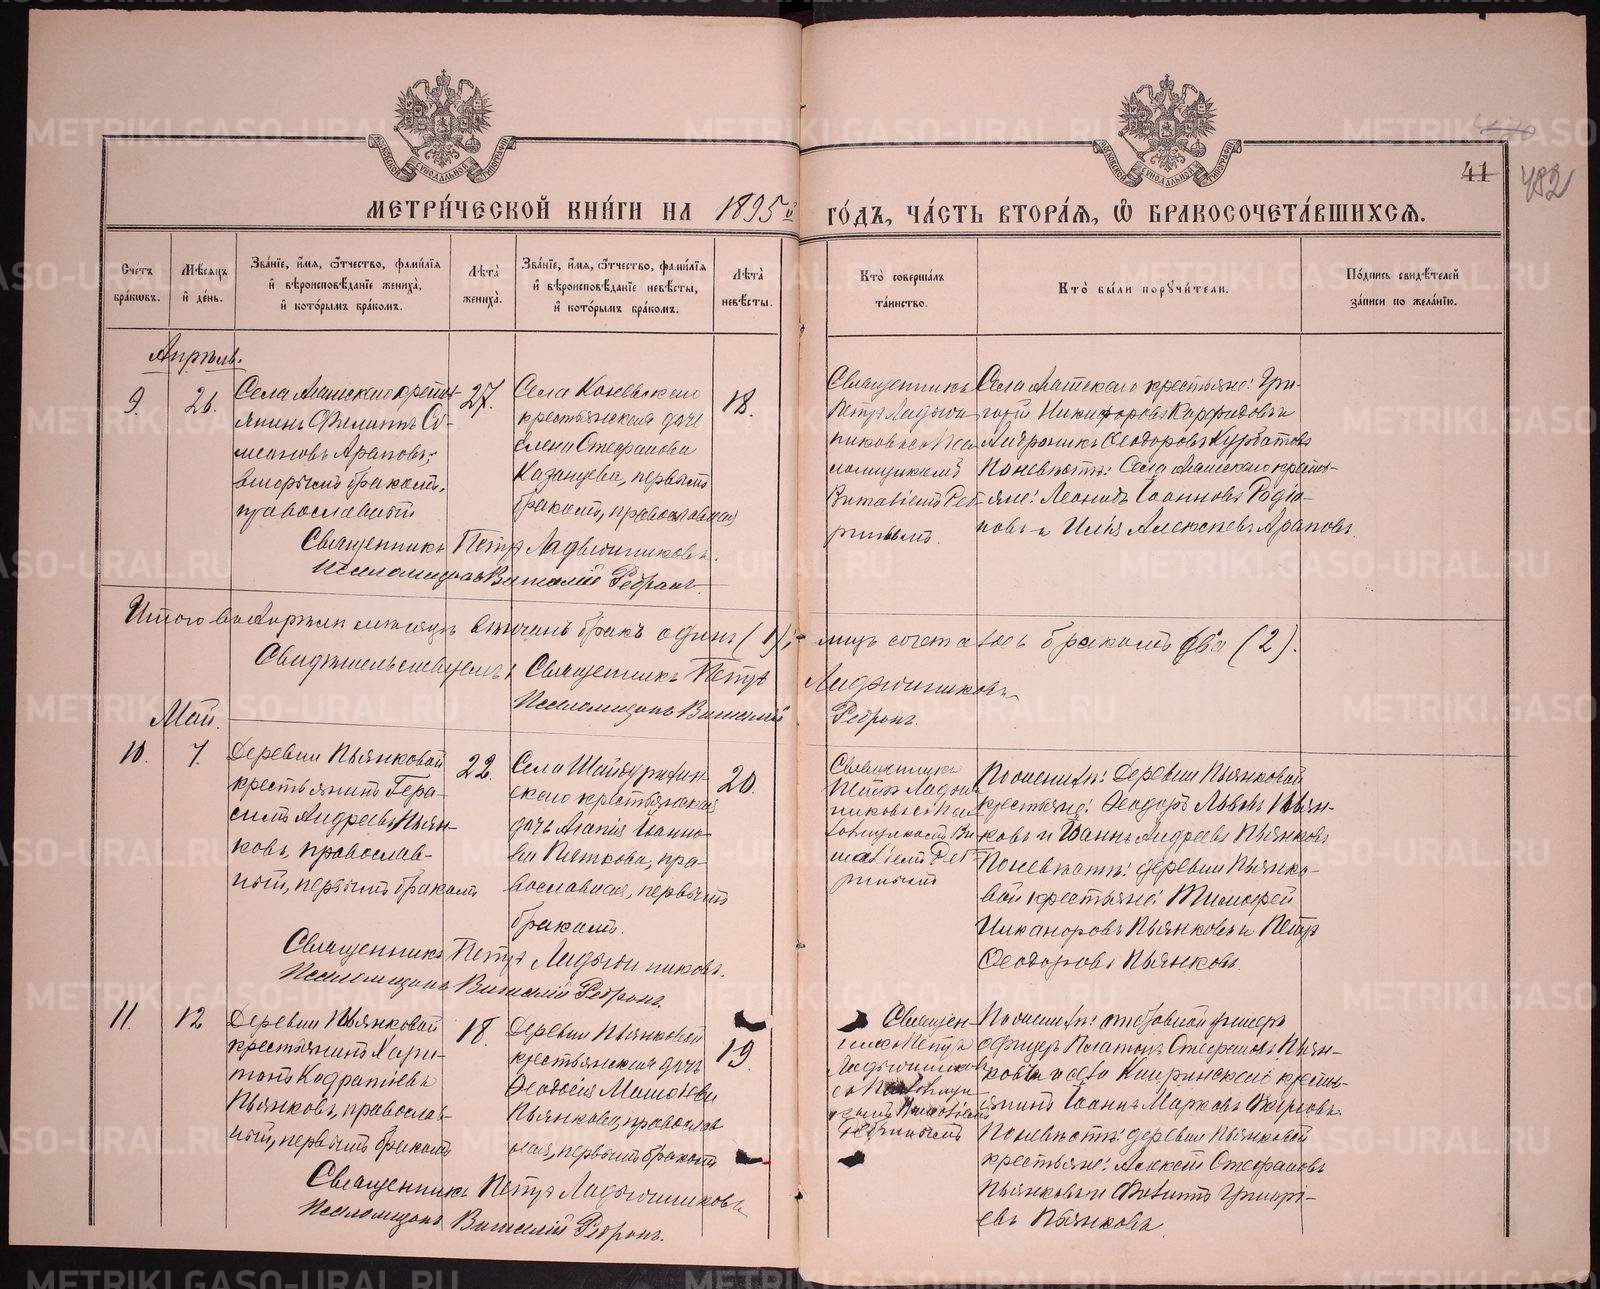 МЕТРИ́ЧЕСКОЙ КНИ́ГИ НА 1895й ГО́ДЪ, ЧА́СТЬ ВТОРА́Я, Ѽ БРАКОСОЧЕТА́ВШИХСЯ.
41
482
Сче́тъ бра́кѡвъ.
Мѣ́сяцъ и҆ де́нь.
Зва́нїе, и҆́мя, ѻ҆́тчество, фами́лїя и҆ вѣроисповѣ́данїе жениха̀, и҆ кото́рымъ бра́комъ.
Лѣта̀ жениха̀.
Зва́нїе, и҆́мя, ѻ҆́тчество, фами́лїя и҆ вѣроисповѣ́данїе невѣ́сты, и҆ кото́рымъ бра́комъ.
Лѣта̀ невѣ́сты.
Кто̀ соверша́лъ та́инство.
Кто̀ бы́ли порꙋчи́тели.
По́дпись свидѣ́телей за́писи по жела́нїю.
Апрѣль.
9.
26.
Села Арамашскаго кресть-
янинъ Филиппъ Си-
меоновъ Араповъ,
вторымъ бракомъ,
православный
27.
Села Коневскаго
крестьянская дочь
Елена Стефанова
Казанцева, первымъ
бракомъ, православная
18.
Священникъ
Петръ Ладыжн-
никовъ съ Пса-
ломщикомъ
Виталіемъ Реб-
ринымъ.
крестьяне: Гри-
горій Никифоровъ
Андроникъ Ѳеодоровъ Курбатовъ
По невѣстѣ: Села кресть-
яне: Леонидъ Іоанновъ Родіо-
новъ и Илья Алексѣевъ Араповъ.
Священникъ Петръ Ладыжниковъ.
Псаломщикъ Виталій Ребринъ
Итого въ Апрѣлѣ мѣсяцѣ вѣнчанъ бракъ одинъ (1); лицъ сочетавш бракомъ два (2).
Свидѣтельствуемъ, Священникъ Петръ Ладыжниковъ
Псаломщикъ Виталій Ребринъ.
Май.
10.
7.
Деревни Пьянковой
крестьянинъ Гера-
симъ Андреевъ Пьян-
ковъ, православ-
ный, первымъ бракомъ
22.
Села Шайдурихин-
скаго крестьянская
дочь Агапія Іоанно-
ва Пяткова, пра-
вославная, первымъ
бракомъ.
20.
Священникъ
Петръ Ладыж-
никовъ съ Пса-
ломщикомъ Ви-
таліемъ Реб-
ринымъ
По женихѣ: Деревни Пьянковой
крестьяне: Ѳеодоръ Львовъ Пьян-
ковъ и Іоаннъ Андреевъ Пьянковъ
По невѣстѣ: деревни Пьянко-
вой крестьяне: Тимоѳей
Никаноровъ Пьянковъ и Петръ
Ѳеодоровъ Пьянковъ.
Священникъ Петръ Ладыжниковъ.
Псаломщикъ Виталій Ребринъ.
11.
12
Деревни Пьянковой
крестьянинъ Хари-
тонъ Кодратіевъ
Пьянковъ, православ-
ный, первымъ бракомъ
18.
Деревни Пьянковой
крестьянская дочь
Ѳеодосія
Пьянкова, православ-
ная, первымъ бракомъ
19.
Священ-
никъ Петръ
Ладыжниковъ
съ Псаломщи-
комъ Виталіемъ
Ребринымъ
По женихѣ: отставной унтеръ
офицеръ Платонъ Стефановъ Пьян-
ковъ и села кресть-
янинъ Іоаннъ Марковъ
По невѣстѣ: деревни Пьянковой
крестьяне: Алексѣй Стефановъ
Пьянковъ и Филиппъ Григорі-
евъ Пьянковъ.
Священникъ Петръ Ладыжниковъ
Псаломщикъ Виталій Ребринъ.
METRIKI.GASO-URAL.RU